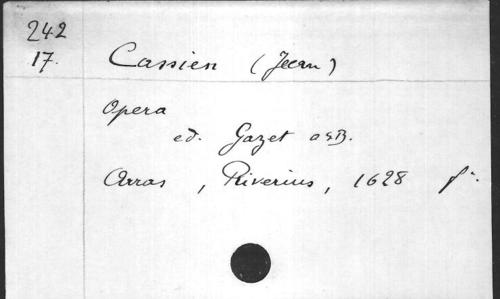 242
17. Cassien (Jean)
Opera
ed. Gazet OSB.
Arras, Riverius, 1628 f°.